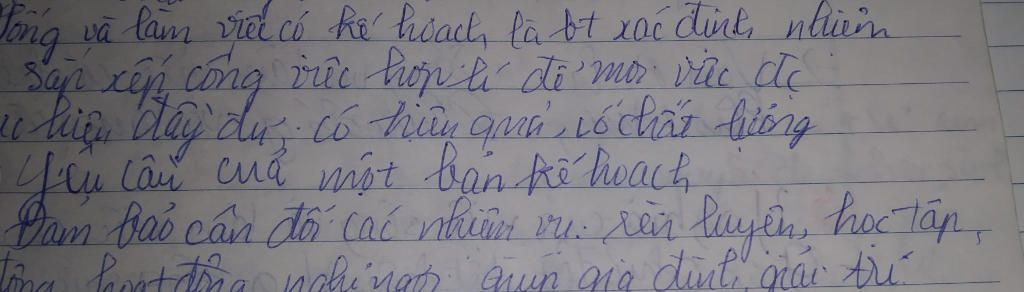 sống và làm việc có kế hoạch là bt xác định nhiệm
sắp xếp công việc hợp lí để mọi việc đc
hiện đầy đủ, có hiệu quả, có chất lượng
Yêu cầu của một bản kế hoạch
Đảm bảo cân đối các nhiệm vụ: rèn luyện, học tập,
hoạt động, nghỉ ngơi, giúp gia đình, giải trí.